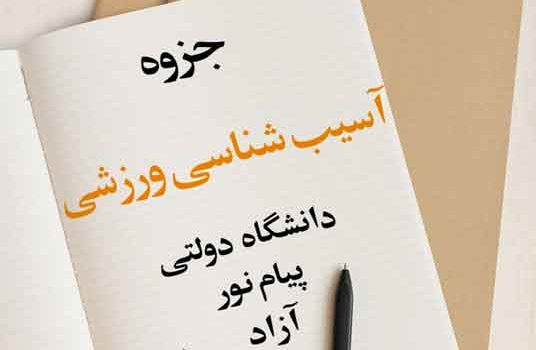 جزوه
آسیب شناسی ورزشی
دانشگاه دولتی
پیام نور
آزاد